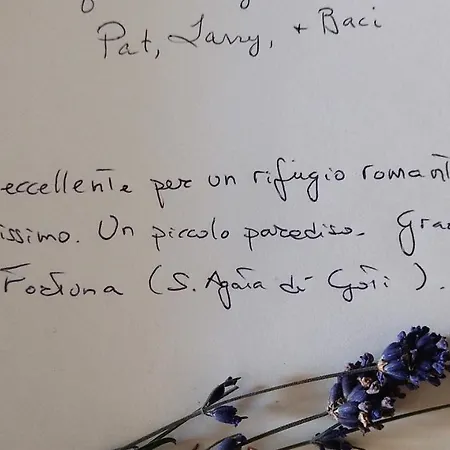 Pat, Larry, + Baci
eccellente per un rifugio romant
issimo. Un piccolo paradiso. Graz
(S. Agata dé Goti).